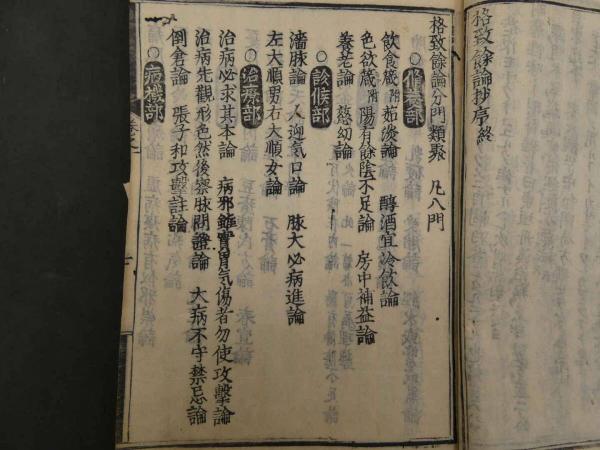 格致餘論抄序終
格致餘論分門類聚 凡八門
○脩養部
飲食箴附茹淡論 醇酒宜冷飲論
色欲箴附陽有餘陰不足論 房中補益論
養老論 慈幼論
○診候部
濇脉論 人迎氣口論 脉大必病進論
左大順男右大順女論
○治療部
治病必求其本論 病邪雖實胃氣傷者勿使攻擊論
治病先觀形色然後察脉問證論 大病不守禁忌論
倒倉論 張子和攻擊註論
○病機部